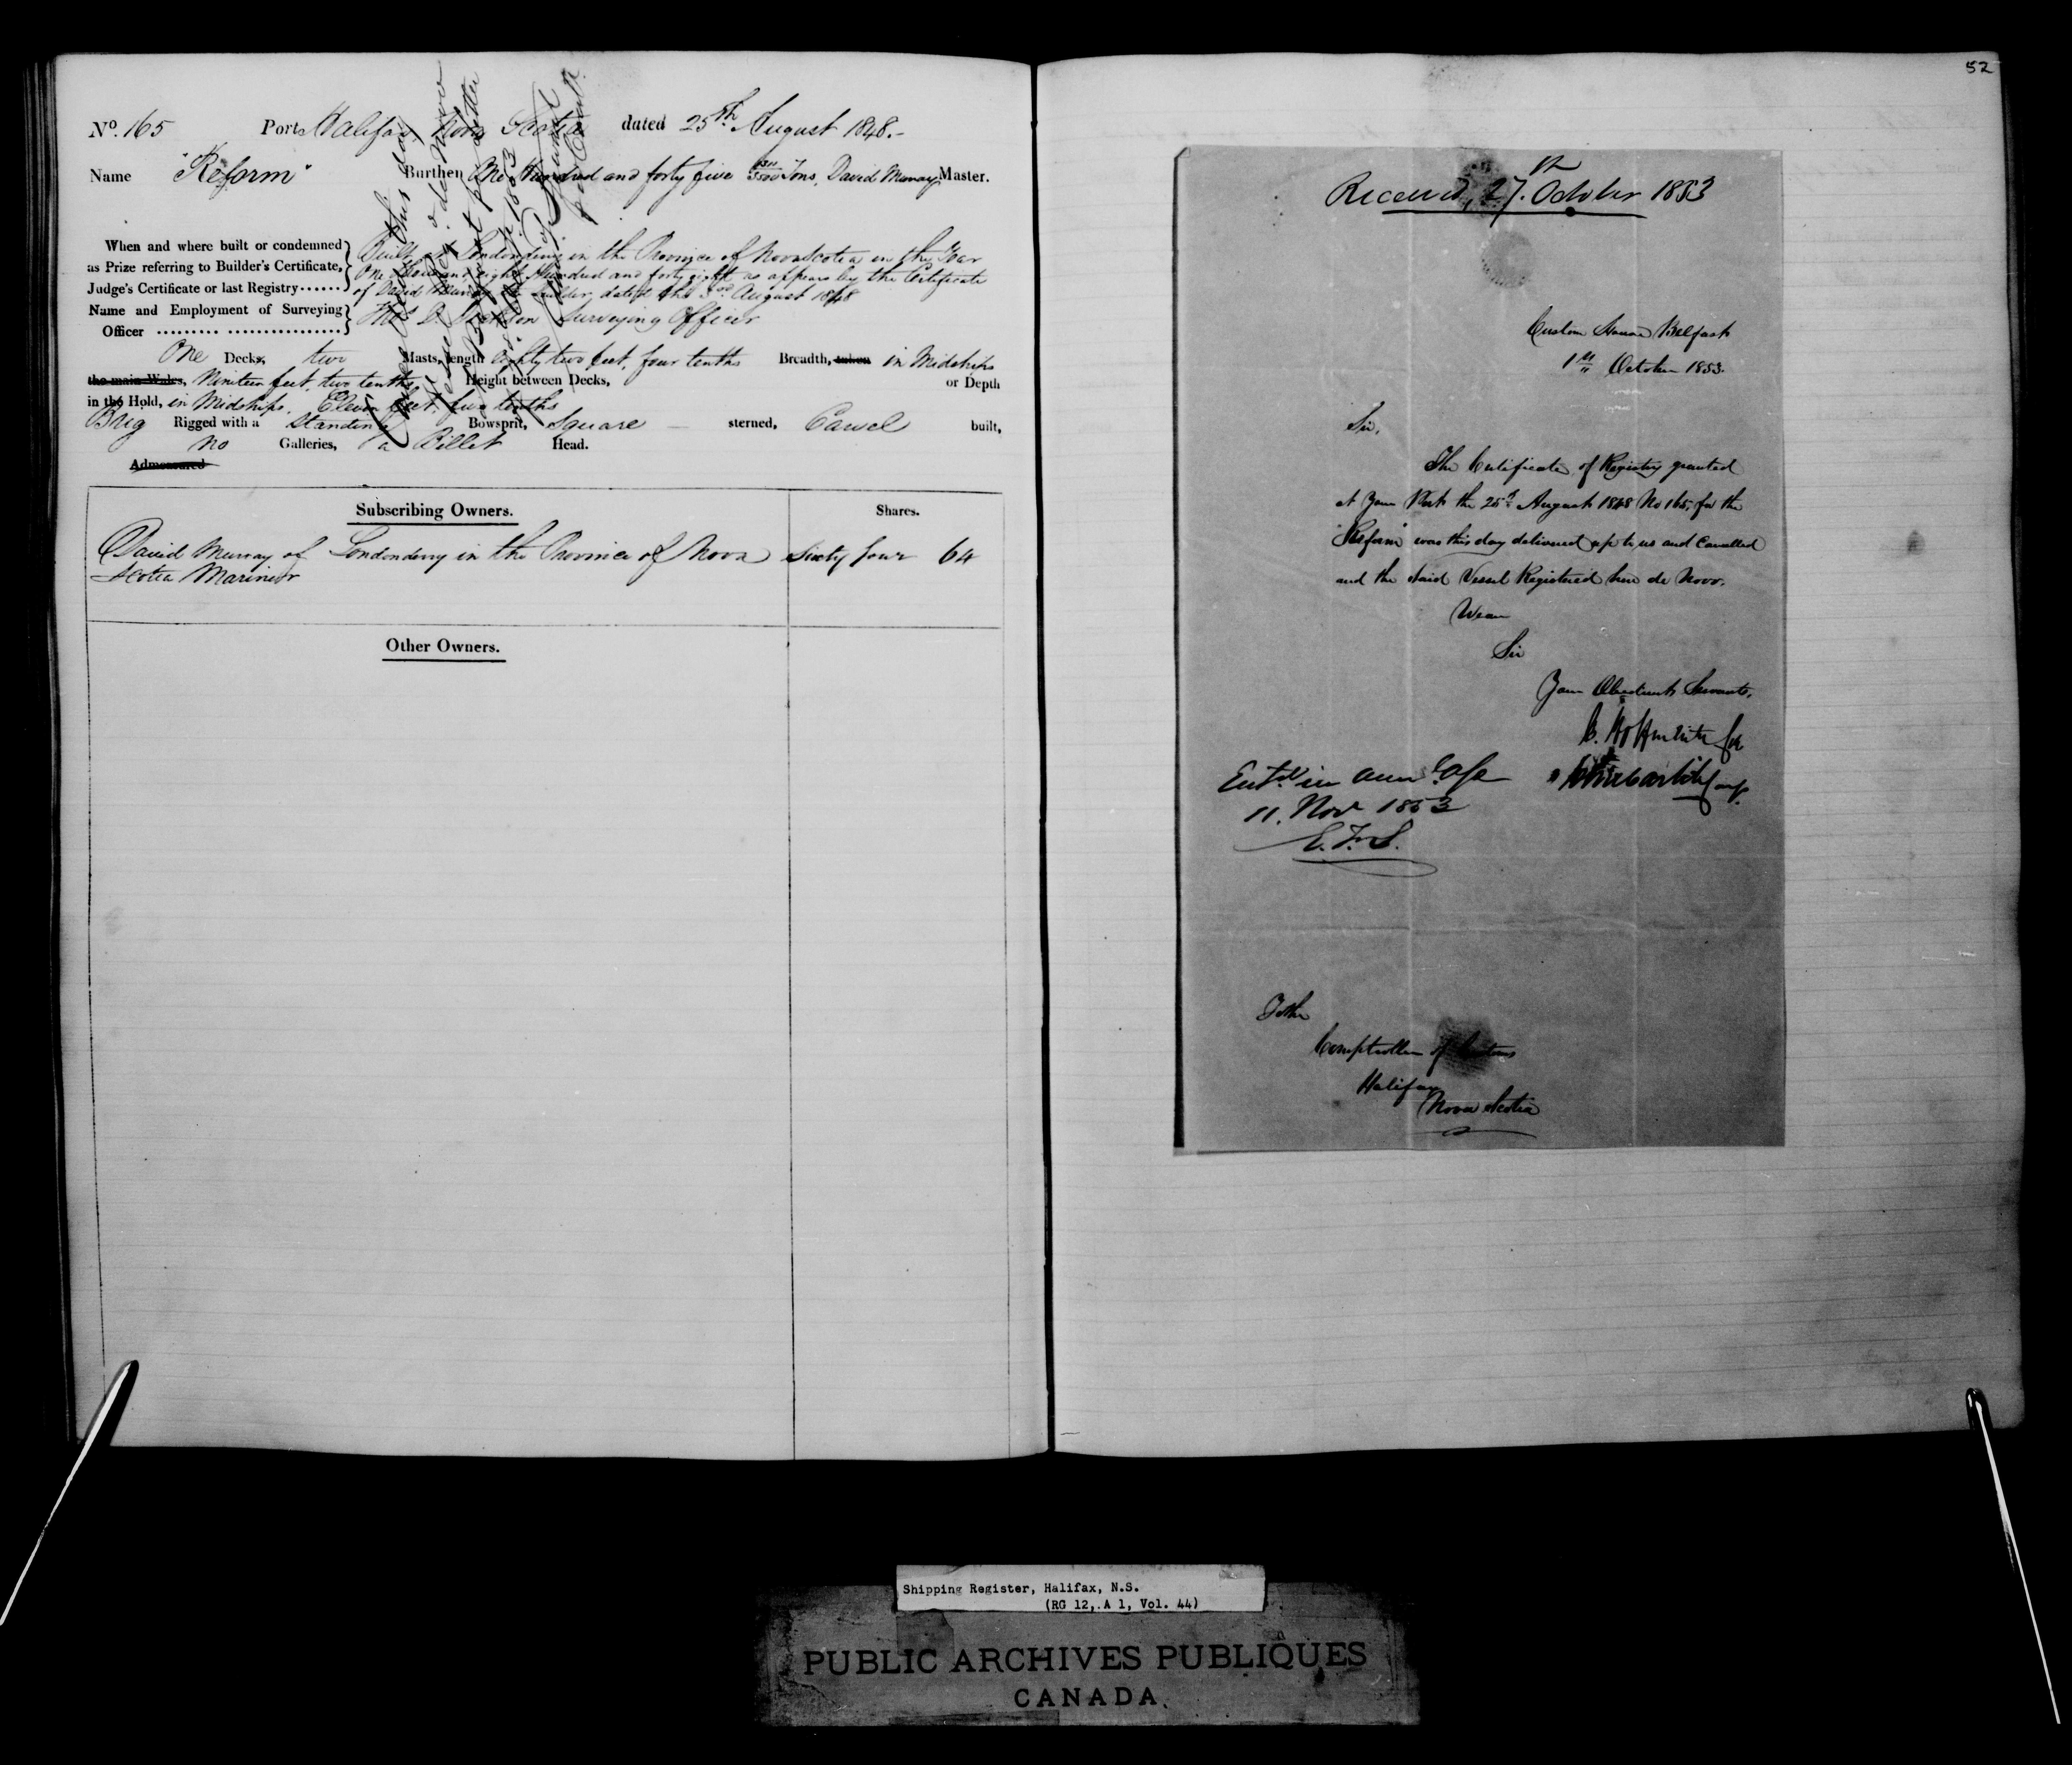 No. 165 Port Halifax Nova Scotia dated 25th August 1848.-
Name "Reform" Burthen One Hundred and forty five Tons, David Murray Master.
When and where built or condemned
as Prize referring to Builder's Certificate,
Judge's Certificate or last Registry
Built at Londonderry in the Province of Nova Scotia in the Year
One thousand eight Hundred and forty eight as appears by the Certificate
of David Murray the Builder, dated the 3rd August 1848
Name and Employment of Surveying
Officer
Thos D. Surveying Officer
One Decks, two Masts, length eighty two feet, four tenths Breadth, taken in Midships
the main Wales, Nineteen feet two tenths Height between Decks, or Depth
in the Hold, in Midships, Eleven feet two tenths
Brig Rigged with a Standing Bowsprit, Square sterned, Carvel built,
no Galleries, a Billet Head.
Admeasured
Subscribing Owners. Shares.
David Murray of Londonderry in the Province of Nova Sixty four 64
Scotia Mariner
Other Owners.
52
Received, 27th October 1853
Custom House Belfast
1st October 1853.
Sir,
The Certificate of Registry granted
at Your Port the 25th August 1848 No 165, for the
"Reform" was this day delivered up to us and Cancelled
and the said Vessel Registered here de Novo.
We are
Sir
Your Obedient Servants,
Entd in
11. Nov 1853
To the
Comptroller of Customs
Halifax
Nova Scotia
Shipping Register, Halifax, N.S.
(RG 12, A 1, Vol. 44)
PUBLIC ARCHIVES PUBLIQUES
CANADA